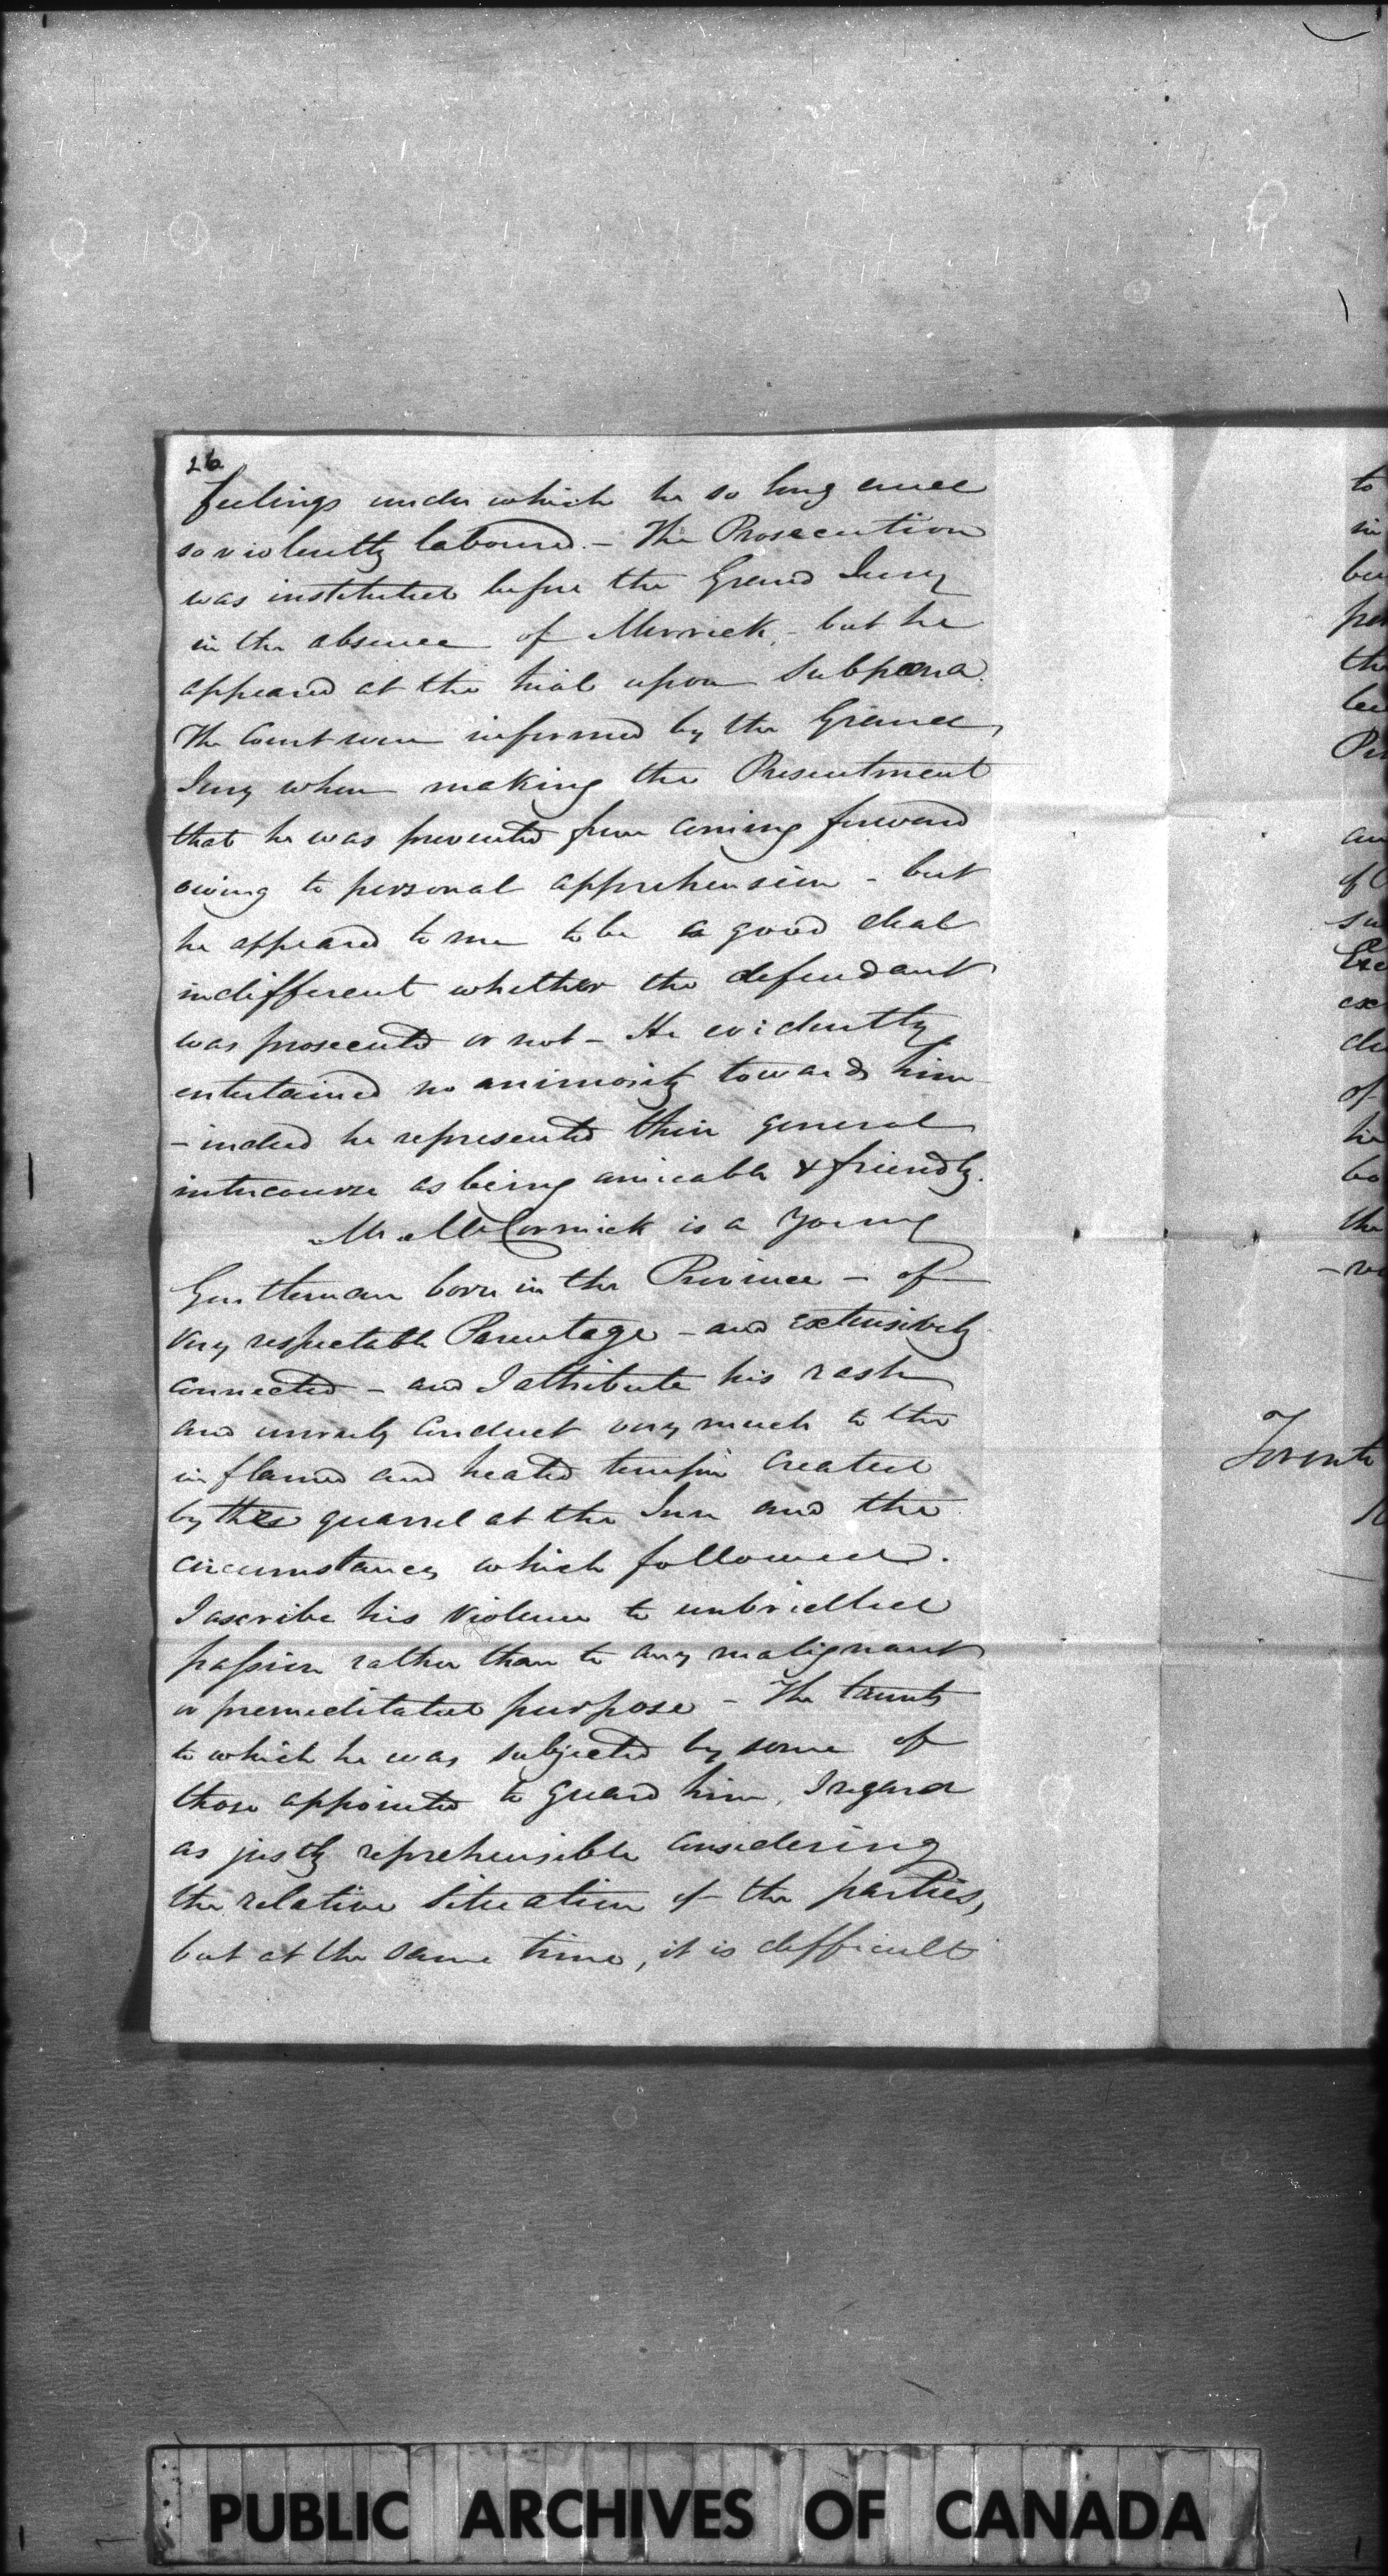 26
feelings under which he so long and
so violently laboured. – The Prosecution
was instituted before the Grand Jury
in the absence of Merrick, – but he
appeared at the trial upon Subpœna.
The Court were informed by the Grand
Jury when making the Presentment
that he was prevented from coming forward
owing to personal apprehension – but
he appeared to me to be a good deal
indifferent whether the defendant
was prosecuted or not – He evidently
entertained no animosity towards him
– indeed he represented their general
intercourse as being amicable & friendly.
Mr. McCormick is a young
Gentleman born in the Province – of
very respectable Parentage – and extensively
connected – and I attribute his rash
and unruly conduct very much to the
inflamed and heated temper created
by the quarrel at the Inn and the
circumstances which followed.
I ascribe his violence to unbridled
passion rather than to any malignant
or premeditated purpose – The taunts
to which he was subjected by some of
those appointed to guard him, I regard
as justly reprehensible considering
the relative situation of the parties,
but at the same time, it is difficult
to
in
the
Toronto
PUBLIC ARCHIVES OF CANADA